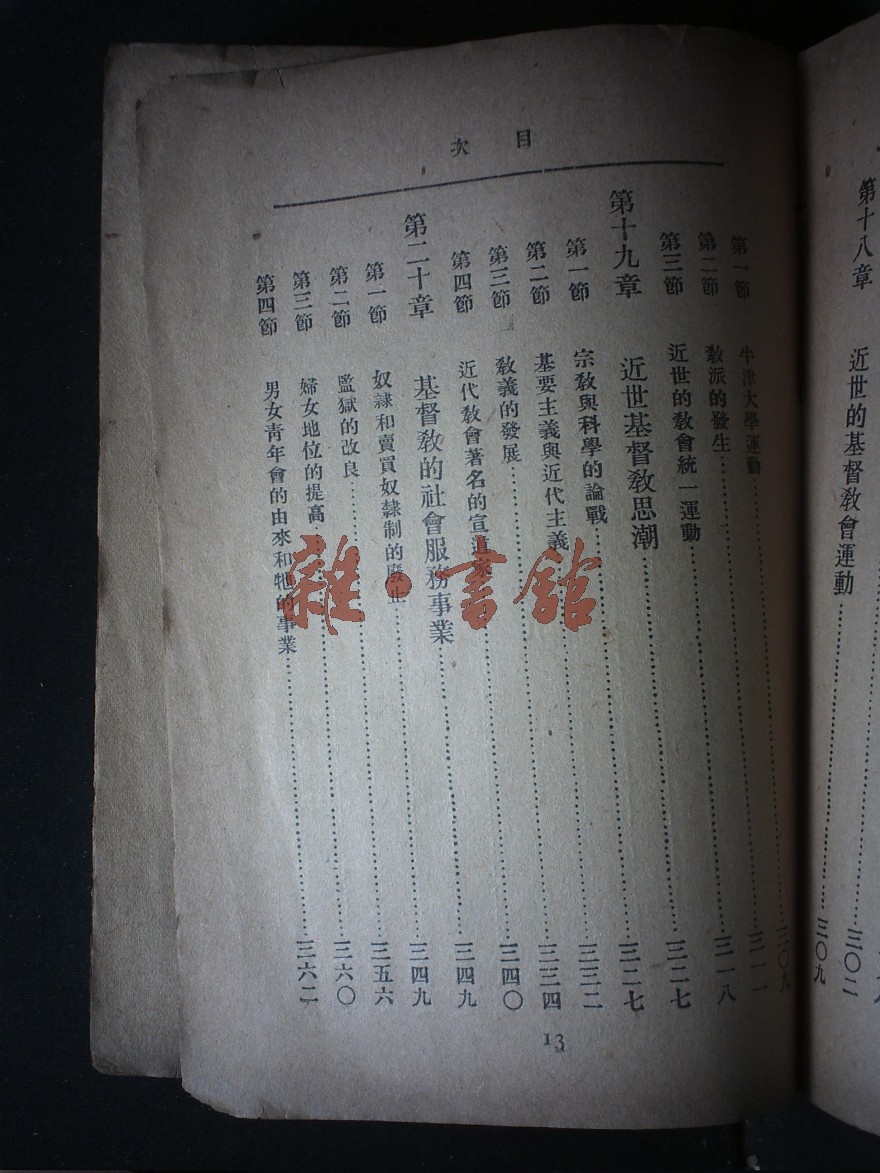 三〇二
第十八章 近世的基督教會運動……三〇九
目次
第一節 牛津大學運動……三〇九
第二節 教派的發生……三一一
第三節 近世的教會統一運動……三一八
第十九章 近世基督教思潮……三二七
第一節 宗教與科學的論戰……三二七
第二節 基要主義與近代主義……三三二
第三節 教義的發展……三三四
第四節 近代教會著名的宣道家……三四〇
第二十章 基督教的社會服務事業……三四九
第一節 奴隸和賣買奴隸制的廢止……三四九
第二節 監獄的改良……三五六
第三節 婦女地位的提高……三六〇
第四節 男女青年會的由來和牠的事業……三六二
13
雜·書館